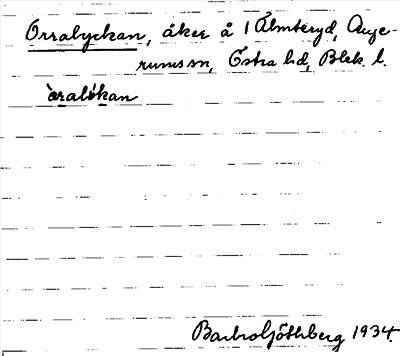 Orralyckan, åker å 1 Älmteryd, Auge-
rums sn, Östra hd, Blek. l.
òralókan
Barbro Göthberg 1934.